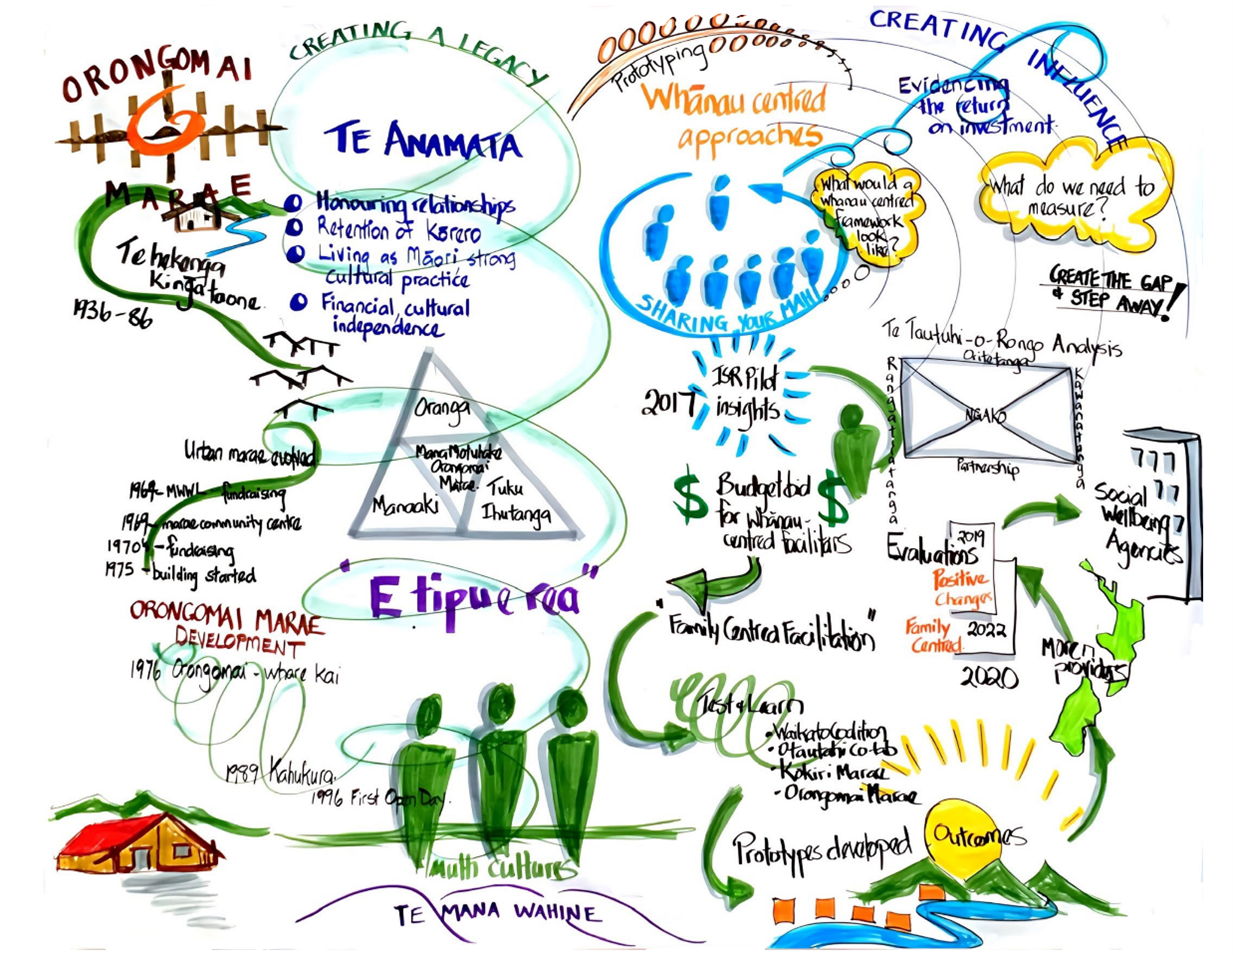 ORONGOMAI
MARAE
Te hekenga
Kingataone
1936-86
Urban marae evolved
1964- MWWL - fundraising
1969- marae community centre
1970's - fundraising
1975 - building started
ORONGOMAI MARAE
DEVELOPMENT
1976 Orongomai - whare kai
1989 Kahukura.
1996 First Open Day.
CREATING A LEGACY
TE ANAMATA
Honouring relationships
Retention of Kōrero
Living as Māori strong
cultural practice
Financial, cultural
independence
Oranga
Mana Motuhake
Orongomai
Marae.
Manaaki
Tuku
Ihutanga
"E tipu e rea"
Multi cultures
TE MANA WAHINE
Prototyping
Whānau centred
approaches
CREATING INFLUENCE
Evidencing
the return
on investment.
What would a
whanau centred
framework
look
like?
What do we need to
measure?
CREATE THE GAP
& STEP AWAY!
SHARING YOUR MAHI
2017
ISR Pilot
insights
$ Budget bid $
for whānau-
centred facilitators
"Family Centred Facilitation"
Test & Learn
• Waikato Coalition
• Otautahi Co-lab
• Kokiri Marae
• Orongomai Marae
Prototypes developed
Outcomes
Te Tautuhi-o-Rongo Analysis
Oritetanga
Rangatiratanga
Kawanatanga
NGAKO
Partnership
Evaluations
2019
Positive
Changes
Family
Centred
2022
2020
Social
Wellbeing
Agencies
More
providers